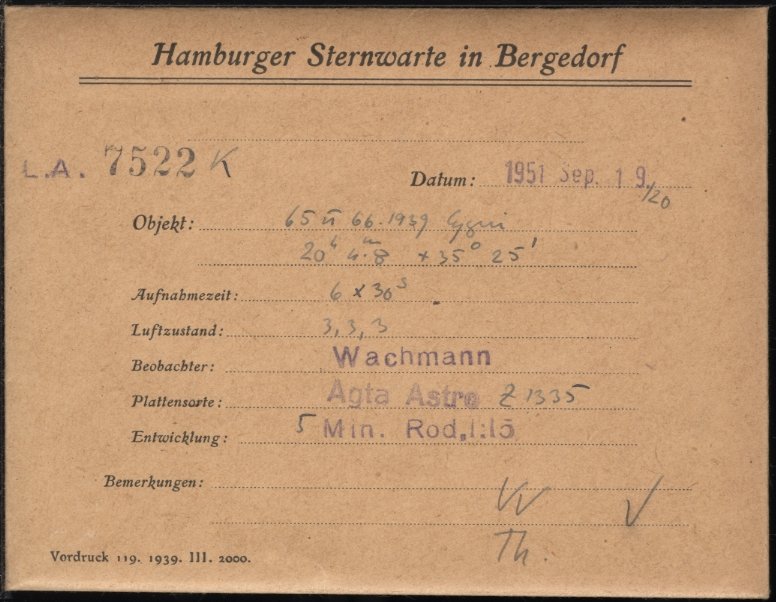 Hamburger Sternwarte in Bergedorf
L.A. 7522 K
Datum: 1951 Sep. 19./20
Objekt: 65 u 66.1939 Cygni
20h 4m.8 +35° 25'
Aufnahmezeit: 6 x 30s
Luftzustand: 3, 3, 3
Beobachter: Wachmann
Plattensorte: Agfa Astro Z 1335
Entwicklung: 5 Min. Rod,1:15
Bemerkungen:
Th.
Vordruck 119. 1939. III. 2000.